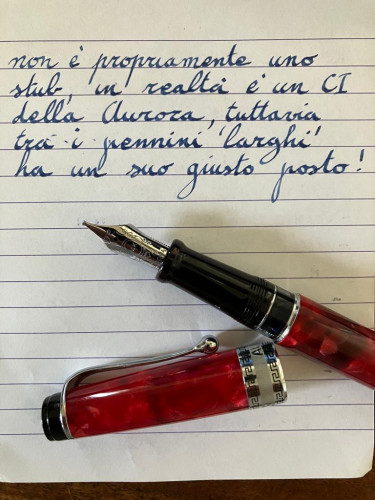 non è propriamente uno
stub, in realtà è un CI
della Aurora, tuttavia
tra i pennini 'larghi'
ha un suo giusto posto!